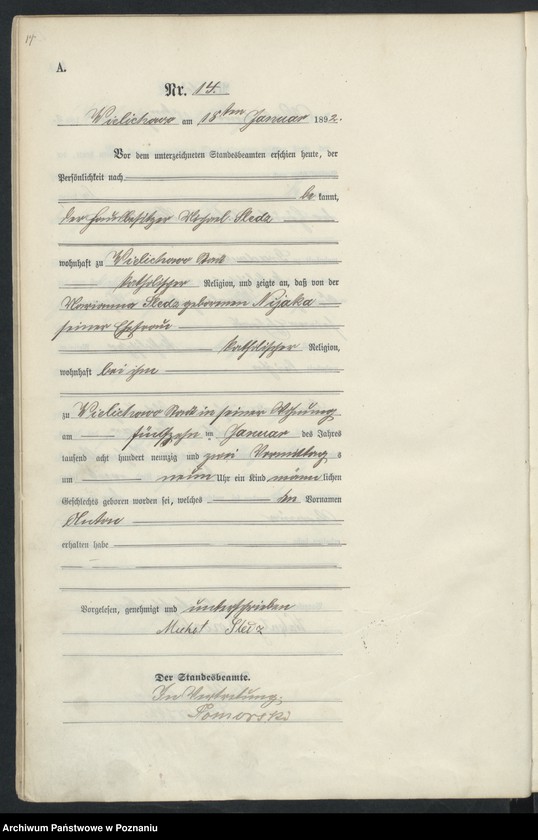 14
A.
Nr. 14.
Wielichowo am 18ten Januar 1892.
Vor dem unterzeichneten Standesbeamten erschien heute, der
Persönlichkeit nach
be kannt,
der Michael Sledz
wohnhaft zu Wielichowo
katholischer Religion, und zeigte an, daß von der
Marianna Sledz geborenen Nijaka
seiner Ehefrau
katholischer Religion,
wohnhaft bei ihm
zu Wielichowo in seiner Wohnung
am fünfzehn ten Januar des Jahres
tausend acht hundert neunzig und zwei Vormittag s
um neun Uhr ein Kind männ lichen
Geschlechts geboren worden sei, welches den Vornamen
Anton
erhalten habe
Vorgelesen, genehmigt und unterschrieben
Michał Sledz
Der Standesbeamte.
In Vertretung:
Pomorski
Archiwum Państwowe w Poznaniu